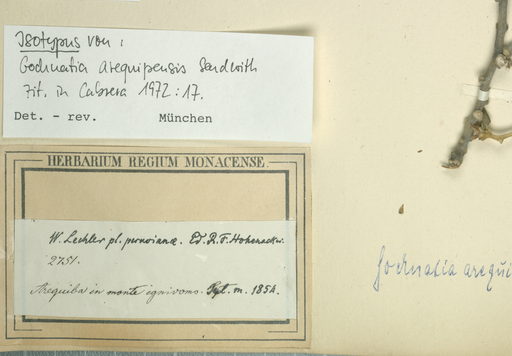 Isotypus von:
Gochnatia arequipensis Sandwith
zit. in Cabrera 1972:17.
Det. - rev. München
HERBARIUM REGIUM MONACENSE.
W. Lechler pl. peruvianæ. Ed. R. F. Hohenacker.
2751.
Arequiba in monte ignivomo. Spt. m. 1854.
Gochnatia arequi